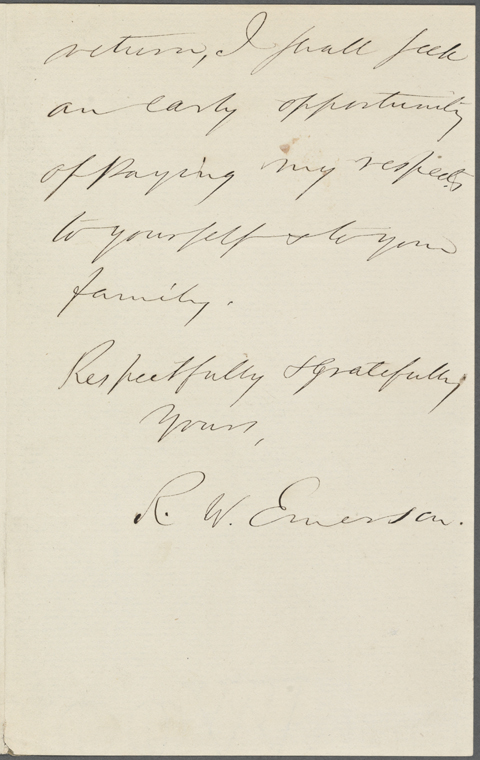 return, I shall seek
an early opportunity
of paying my respects
to yourself & to your
family.
Respectfully & gratefully
Yours,
R. W. Emerson.